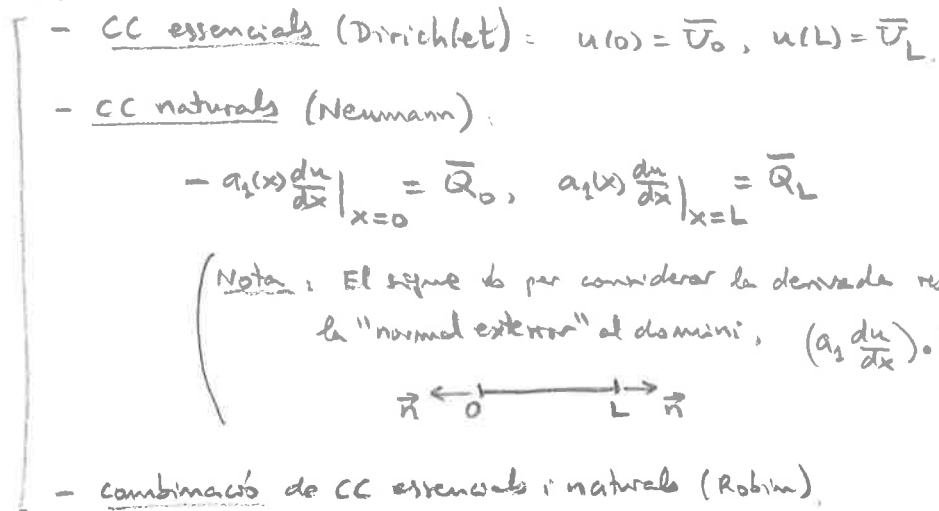 - CC essencials (Dirichlet): u(0) = U̅₀, u(L) = U̅_L.
- CC naturals (Neumann).
- a₁(x) du/dx |ₓ₌₀ = Q̅₀, a₁(x) du/dx |ₓ₌L = Q̅_L
Nota: El signe és per considerar la derivada
la "normal exterior" al domini, (a₁ du/dx).
n⃗ 0 L n⃗
- combinació de CC essencials i naturals (Robin)